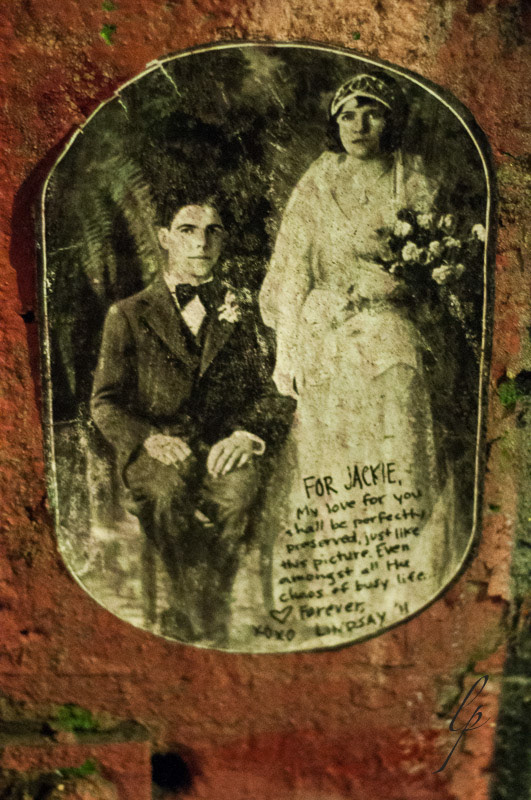 FOR JACKIE,
My love for you
shall be perfectly
preserved, just like
this picture. Even
amongst all the
chaos of busy life.
♡ Forever,
XOXO LINDSAY '11
lp